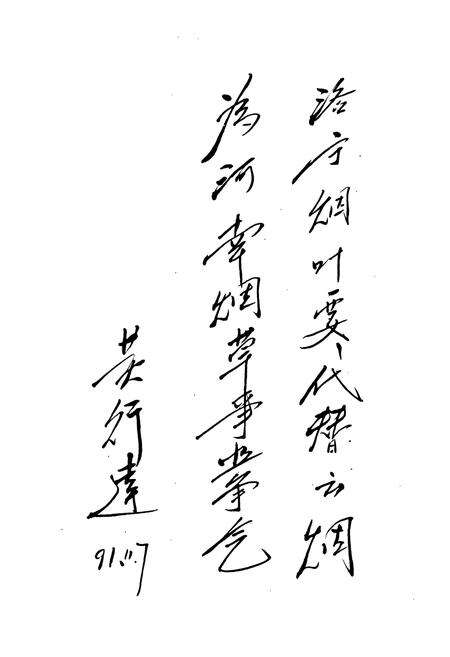 洛宁烟叶要代替云烟
为河南烟草事业争气
黄行达
91.11.7